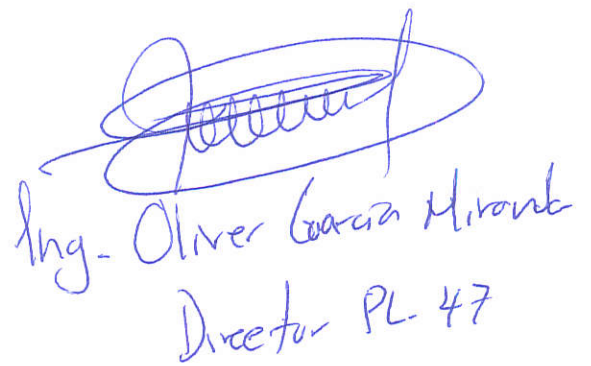 Ing. Oliver García Miranda
Director PL. 47